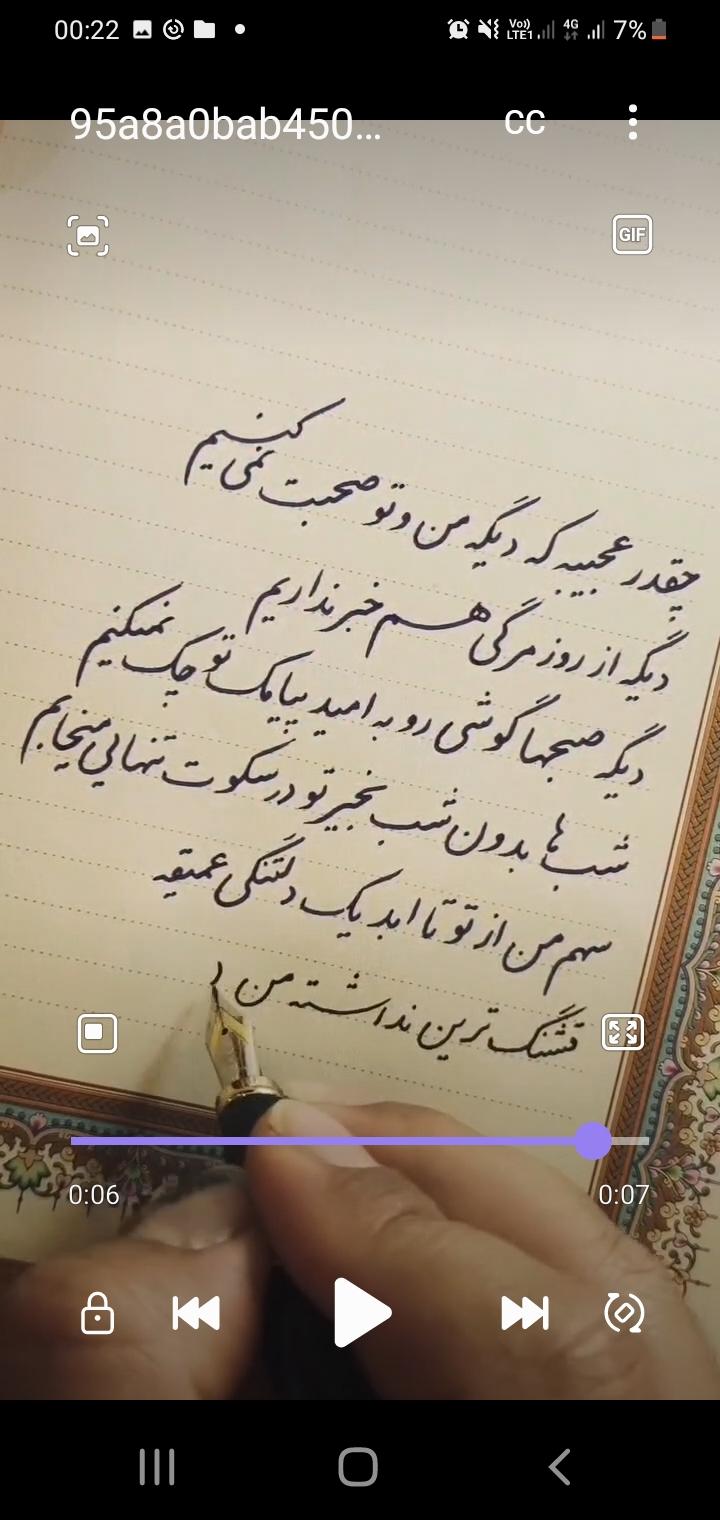 00:22 Vo) LTE1 4G 7%
95a8a0bab450... CC
GIF
چقدر عجیبه که دیگه من و تو صحبت نمی کنیم
دیگه از روزمرگی هم خبر نداریم
دیگه صبحها گوشی رو به امید پیامک تو چک نمیکنیم
شب ها بدون شب بخیر تو در سکوت تنهایی میخوابم
سهم من از تو تا ابد یک دلتنگی عمیقه
قشنگ ترین نداشته من
0:06 0:07